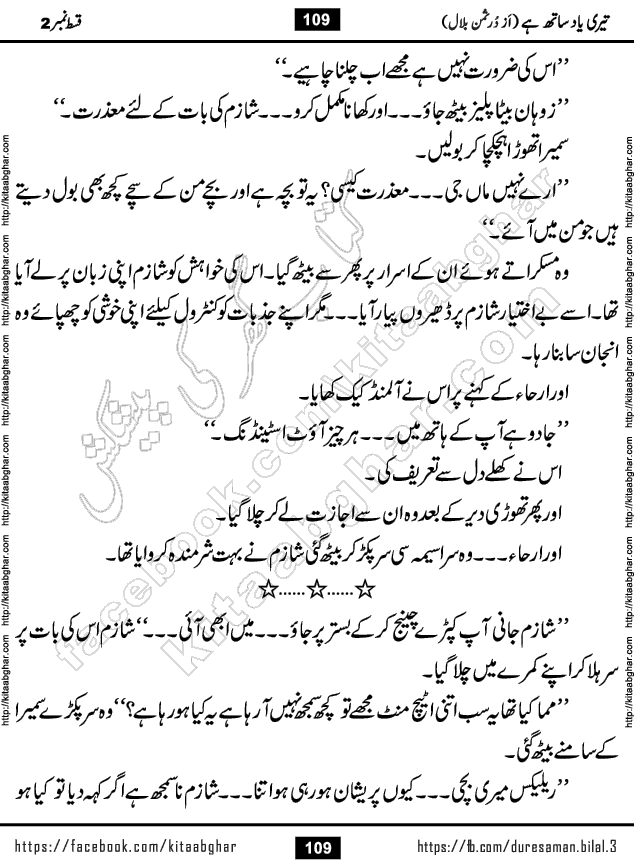 تیری یاد ساتھ ہے (از دُرِثمن بلال)
109
قسط نمبر 2
’’اس کی ضرورت نہیں ہے مجھے اب چلنا چاہیے۔‘‘
’’زوہان بیٹا پلیز بیٹھ جاؤ۔۔۔اور کھانا مکمل کرو۔۔۔شازم کی بات کے لئے معذرت۔‘‘
سمیرا تھوڑا ہچکچا کر بولیں۔
’’ارے نہیں ماں جی۔۔۔معذرت کیسی؟ یہ تو بچہ ہے اور بچے من کے سچے کچھ بھی بول دیتے
ہیں جو من میں آئے۔‘‘
وہ مسکراتے ہوئے ان کے اسرار پر پھر سے بیٹھ گیا۔اس کی خواہش کو شازم اپنی زبان پر لے آیا
تھا۔اسے بے اختیار شازم پر ڈھیروں پیار آیا۔۔۔مگر اپنے جذبات کو کنٹرول کیلئے اپنی خوشی کو چھپائے وہ
انجان سا بنا رہا۔
اور ارحاء کے کہنے پر اس نے آلمنڈ کیک کھایا۔
’’جادو ہے آپ کے ہاتھ میں۔۔۔ہر چیز آؤٹ اسٹینڈنگ۔‘‘
اس نے کھلے دل سے تعریف کی۔
اور پھر تھوڑی دیر کے بعد وہ ان سے اجازت لے کر چلا گیا۔
اور ارحاء۔۔۔وہ سراسیمہ سی سر پکڑ کر بیٹھ گئی شازم نے بہت شرمندہ کروایا تھا۔
☆......☆......☆
’’شازم جانی آپ کپڑے چینج کر کے بستر پر جاؤ۔۔۔میں ابھی آئی۔۔۔‘‘شازم اس کی بات پر
سر ہلا کر اپنے کمرے میں چلا گیا۔
’’مما کیا تھا یہ سب اتنی اٹیچ منٹ مجھے تو کچھ سمجھ نہیں آ رہا ہے یہ کیا ہو رہا ہے؟‘‘وہ سر پکڑے سمیرا
کے سامنے بیٹھ گئی۔
’’ریلیکس میری بچی۔۔۔کیوں پریشان ہو رہی ہو اتنا۔۔۔شازم نا سمجھ ہے اگر کہہ دیا تو کیا ہو
http://kitaabghar.com http://kitaabghar.com http://kitaabghar.com http://kitaabghar.com http://kitaabghar.com http://kitaabghar.com
http://kitaabghar.com http://kitaabghar.com http://kitaabghar.com http://kitaabghar.com http://kitaabghar.com http://kitaabghar.com
کتاب گھر کی پیشکش
facebook.com/kitaabghar
kitaabghar.com
https://facebook.com/kitaabghar
109
https://fb.com/duresaman.bilal.3